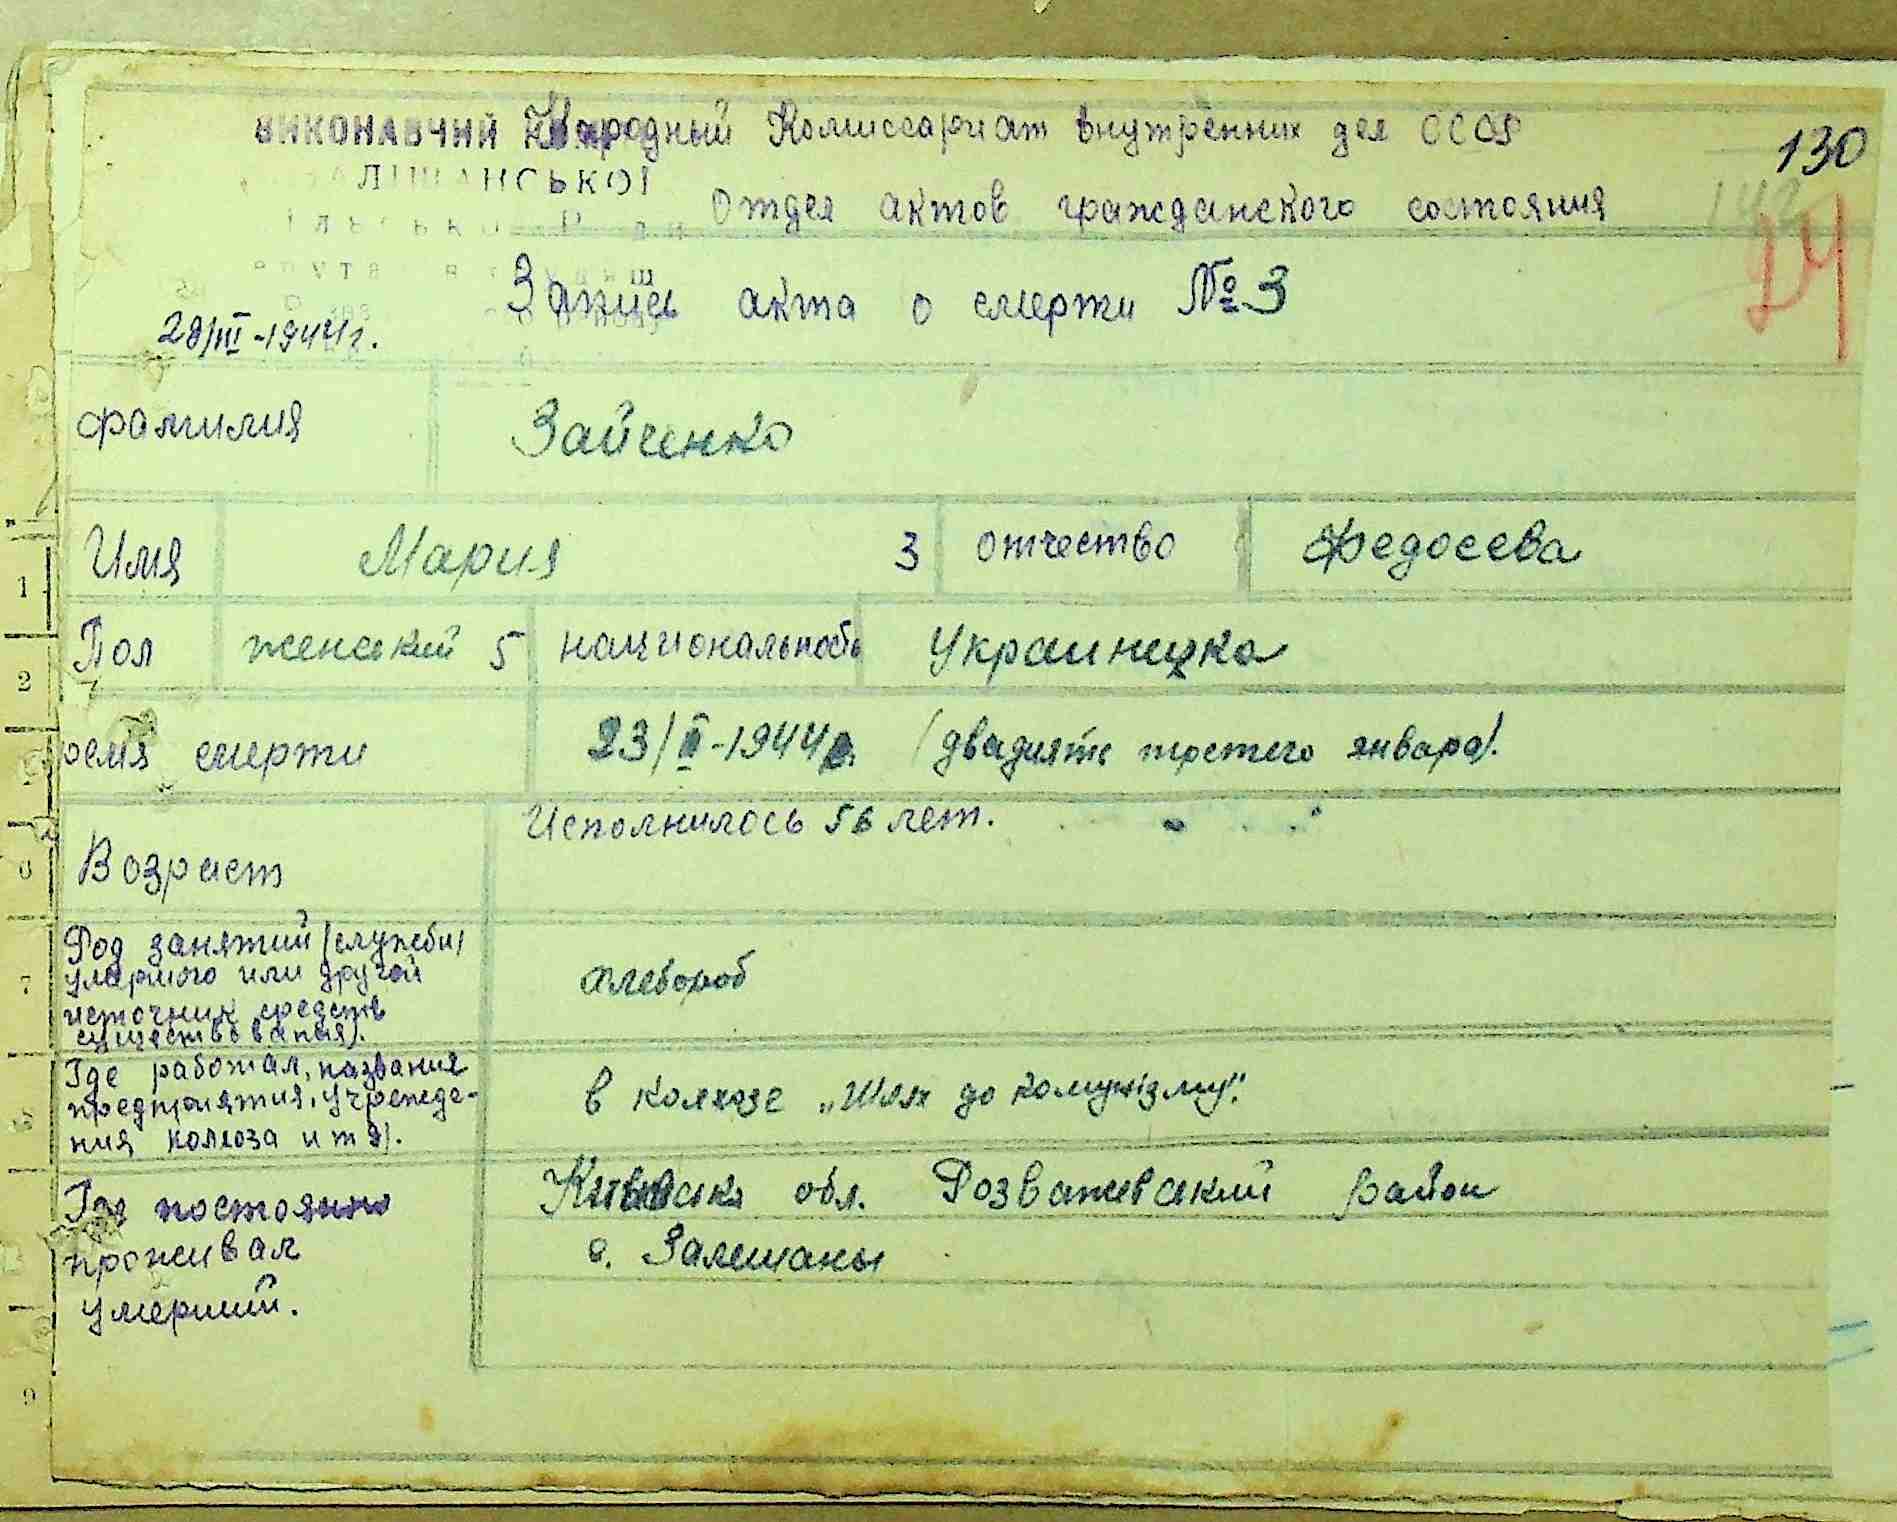 ВИКОНАВЧИЙ Народный Комиссариат внутренних дел СССР
130
ЛІШАНСЬКОЇ
Отдел актов гражданского состояния
142
24
Запись акта о смерти № 3
28/III-1944 г.
фамилия Зайченко
Имя Мария 3 отчество Федосева
Пол женский 5 национальность Украиницка
ремя смерти 23/II-1944г. (двадцять третего января).
Возраст Исполнилось 56 лет.
Род занятий (службы)
умаршого или другой
источник средств
существования). хлебороб
Где работал, названия
предприятия, учрежде-
ния колхоза и т д). в колхозе „Шлях до комунізму".
Где постоянно
проживал
умерший.
Киевска обл. Розважевский район
с. Залешаны
1
2
6
7
9